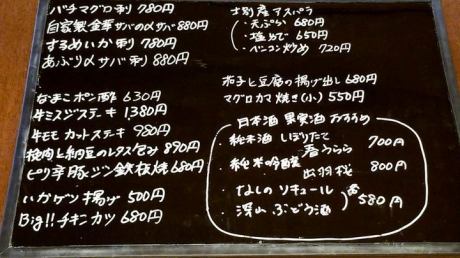 バチマグロ刺 780円
自家製金華サバの〆サバ 880円
するめいか刺 780円
あぶり〆サバ刺 880円
なまこポン酢 630円
牛ミスジステーキ 1,380円
牛モモカットステーキ 980円
挽肉と納豆のレタス包み 890円
ピリ辛豚ジン鉄板焼 680円
いかゲソ揚げ 500円
Big!! チキンカツ 680円
士別産アスパラ
・天ぷら 680円
・塩ゆで 650円
・ベーコン炒め 720円
茄子と豆腐の揚げ出し 680円
マグロカマ焼き(小) 550円
日本酒 果実酒 おすすめ
・純米酒 しぼりたて
春うらら 700円
・純米吟醸
出羽桜 800円
・なしのリキュール
・深山ぶどう酒 各580円